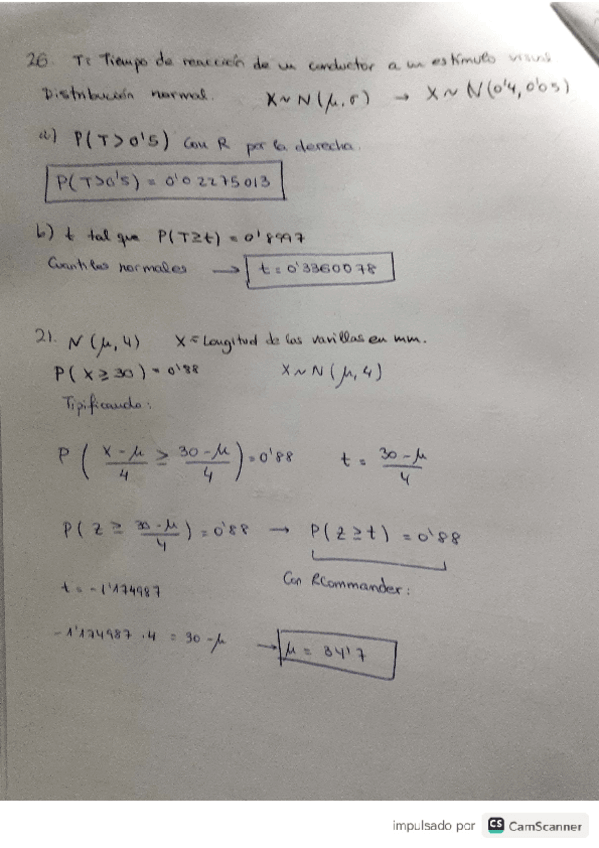 26. T: Tiempo de reacción de un conductor a un estímulo visual
Distribución normal. X~N(μ,σ) → X~N(0'4,0'05)
a) P(T>0'5) Con R por la derecha.
P(T>0'5) = 0'02275013
b) t tal que P(T≥t) = 0'8997
Cuantiles normales → t = 0'3360078
21. N(μ,4) X = Longitud de las varillas en mm.
P(X≥30) = 0'88 X~N(μ,4)
Tipificando:
P((X-μ)/4 ≥ (30-μ)/4) = 0'88 t = (30-μ)/4
P(Z ≥ (30-μ)/4) = 0'88 → P(Z≥t) = 0'88
t = -1'174987 Con RCommander:
-1'174987 · 4 = 30-μ → μ = 34'7
impulsado por CS CamScanner